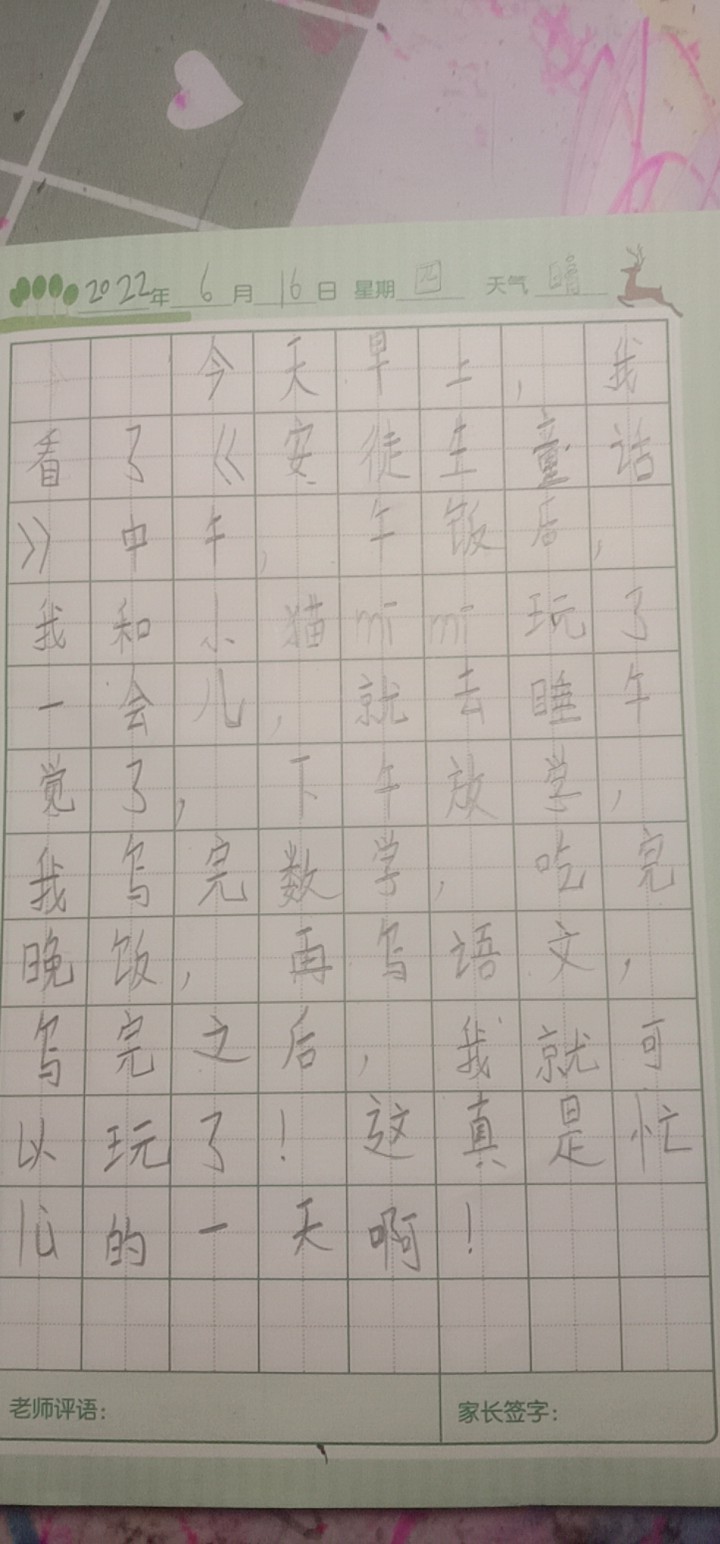 2022年 6 月 16 日 星期 四 天气 晴
今天早上，我
看了《安徒生童话
》中午，午饭后，
我和小猫mīmī玩了
一会儿，就去睡午
觉了，下午放学，
我写完数学，吃完
晚饭，再写语文，
写完之后，我就可
以玩了！这真是忙
的一天啊！
老师评语：
家长签字：